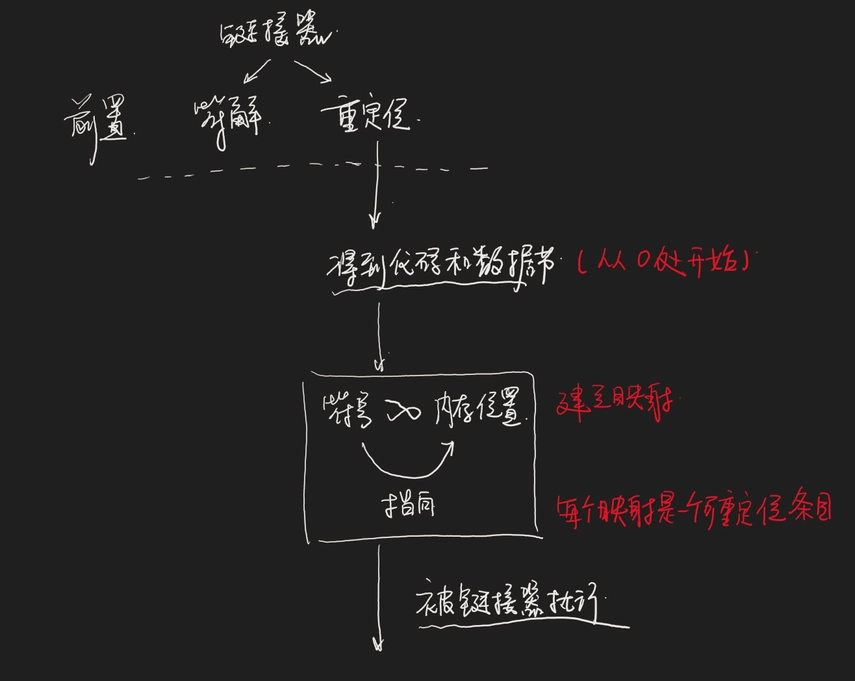 链接器
前置 符解 重定位
得到代码和数据节 (从0处开始)
符号 ∞ 内存位置 建立映射
指向
每个映射是一个重定位条目
被链接器执行